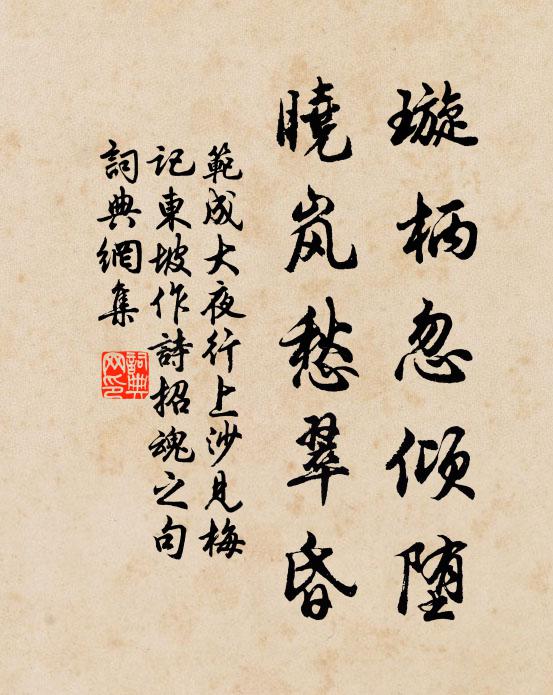 璇柄忽倾堕
曉岚愁翠昏
範成大夜行上沙見梅
記東坡作詩招魂之句
詞典網集
詞典
网印